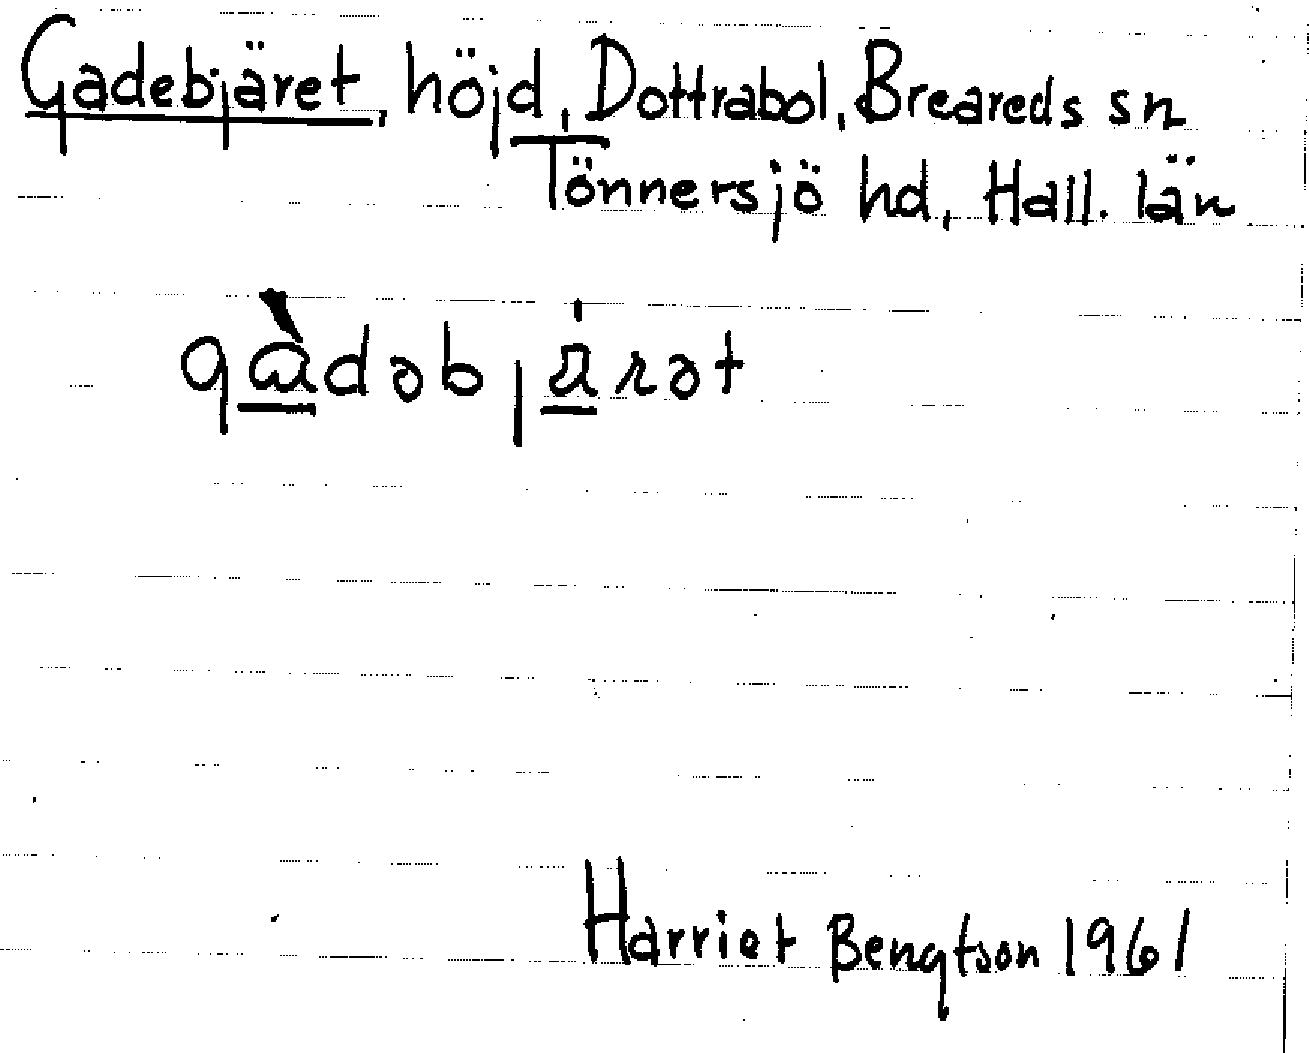 Gadebjäret, höjd, Dottrabol, Breareds sn
Tönnersjö hd, Hall. län
gàdəbjärət
Harriet Bengtson 1961